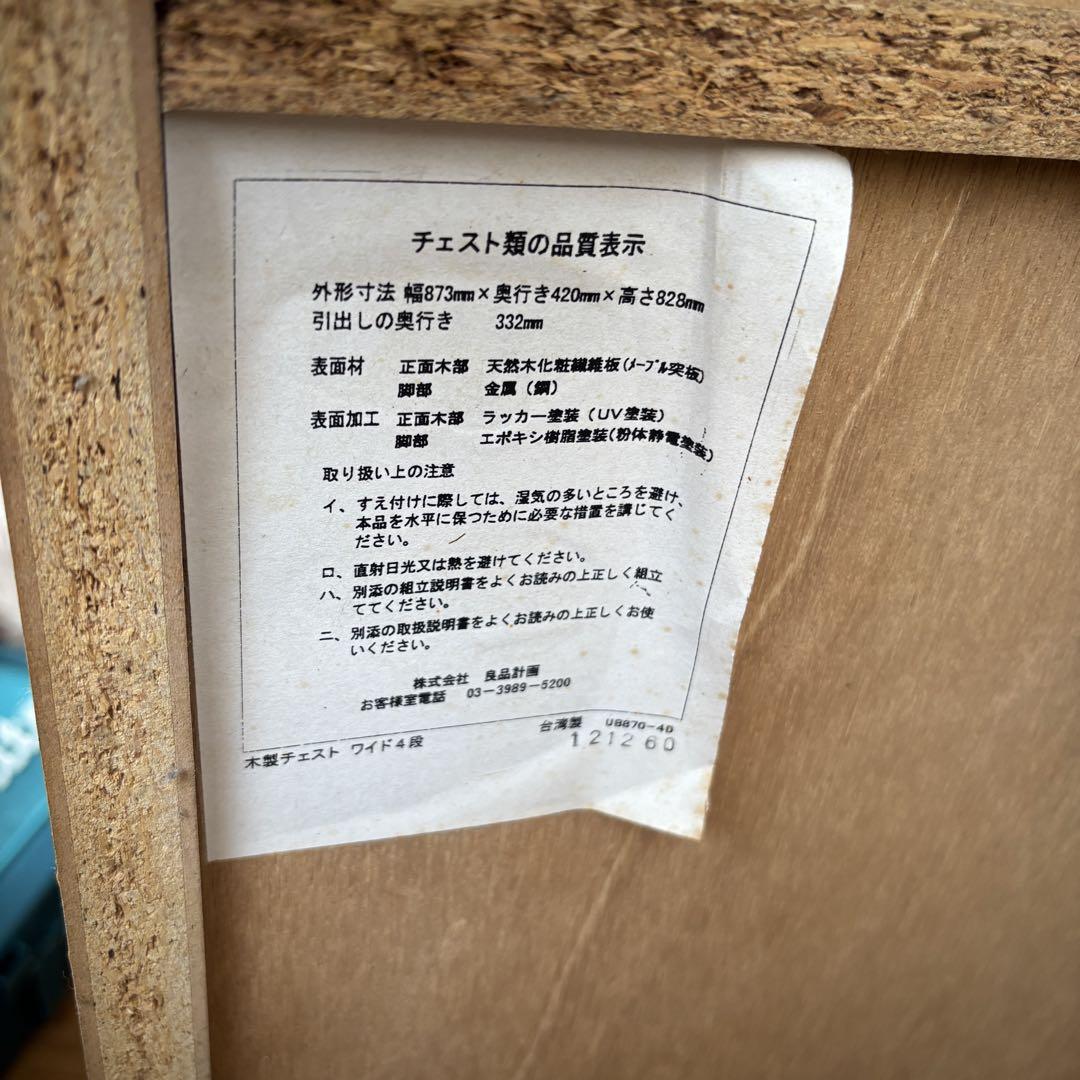 チェスト類の品質表示
外形寸法 幅873mm×奥行き420mm×高さ828mm
引出しの奥行き 332mm
表面材 正面木部 天然木化粧繊維板(メープル突板)
脚部 金属(鋼)
表面加工 正面木部 ラッカー塗装(UV塗装)
脚部 エポキシ樹脂塗装(粉体静電塗装)
取り扱い上の注意
イ、すえ付けに際しては、湿気の多いところを避け、
本品を水平に保つために必要な措置を講じてく
ださい。
ロ、直射日光又は熱を避けてください。
ハ、別添の組立説明書をよくお読みの上正しく組立
ててください。
ニ、別添の取扱説明書をよくお読みの上正しくお使
いください。
株式会社 良品計画
お客様室電話 03-3989-5200
台湾製 U887G-4D
木製チェスト ワイド4段 121260